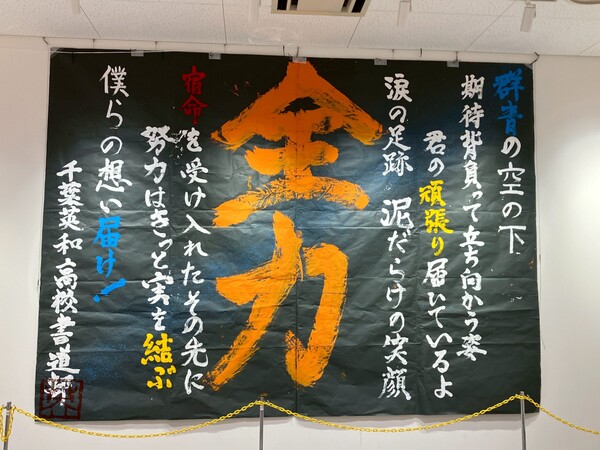 群青の空の下
期待背負って立ち向かう姿
君の頑張り届いているよ
涙の足跡 泥だらけの笑顔
全力
宿命を受け入れたその先に
努力はきっと実を結ぶ
僕らの想い届け!
千葉英和高校書道部